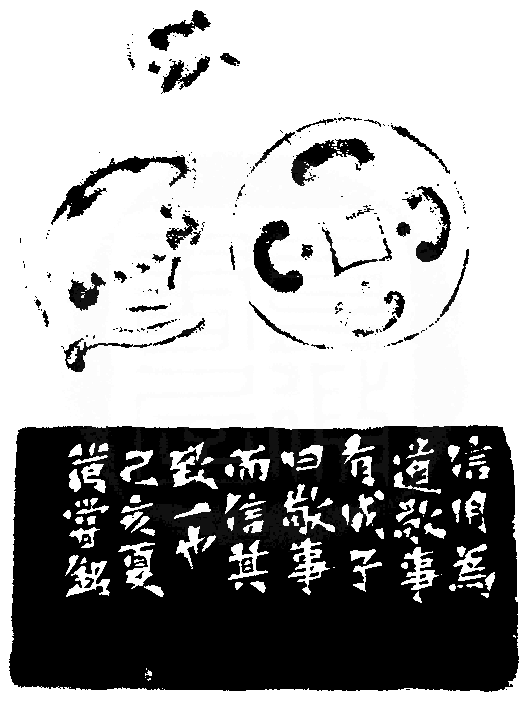 信用為
道敬事
有成子
曰敬事
而信其
致一也
己亥夏
銘